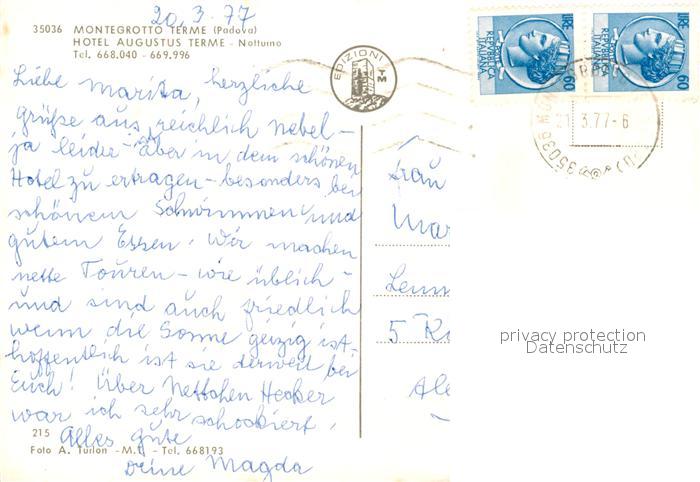 20.3.77
35036 MONTEGROTTO TERME (Padova)
HOTEL AUGUSTUS TERME - Notturno
Tel. 668.040 - 669.996
Liebe Marita, herzliche
Grüße aus reichlich Nebel-
ja leider - Aber in dem schönen
Hotel zu ertragen - besonders bei
schönem Schwimmen und
gutem Essen. Wir machen
nette Touren - wie üblich -
und sind auch friedlich
wenn die Sonne geizig ist.
hoffentlich ist sie derweil bei
Euch! Über Nettchen Hecker
war ich sehr schockiert.
Alles gute
Deine Magda
215
Foto A. Turlon - M.T. - Tel. 668193
EDIZIONI
TM
LIRE 60
REPUBBLICA ITALIANA
LIRE 60
REPUBBLICA ITALIANA
21.3.77-6
35036
Frau
Mar
5 K
privacy protection
Datenschutz